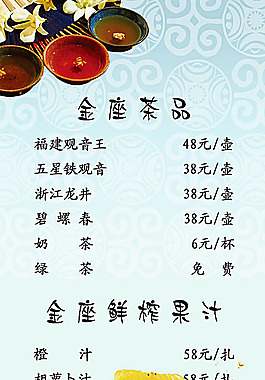 金座茶品
福建观音王 48元/壶
五星铁观音 38元/壶
浙江龙井 38元/壶
碧螺春 38元/壶
奶茶 6元/杯
绿茶 免费
金座鲜榨果汁
橙汁 58元/扎
胡萝卜汁 58元/扎